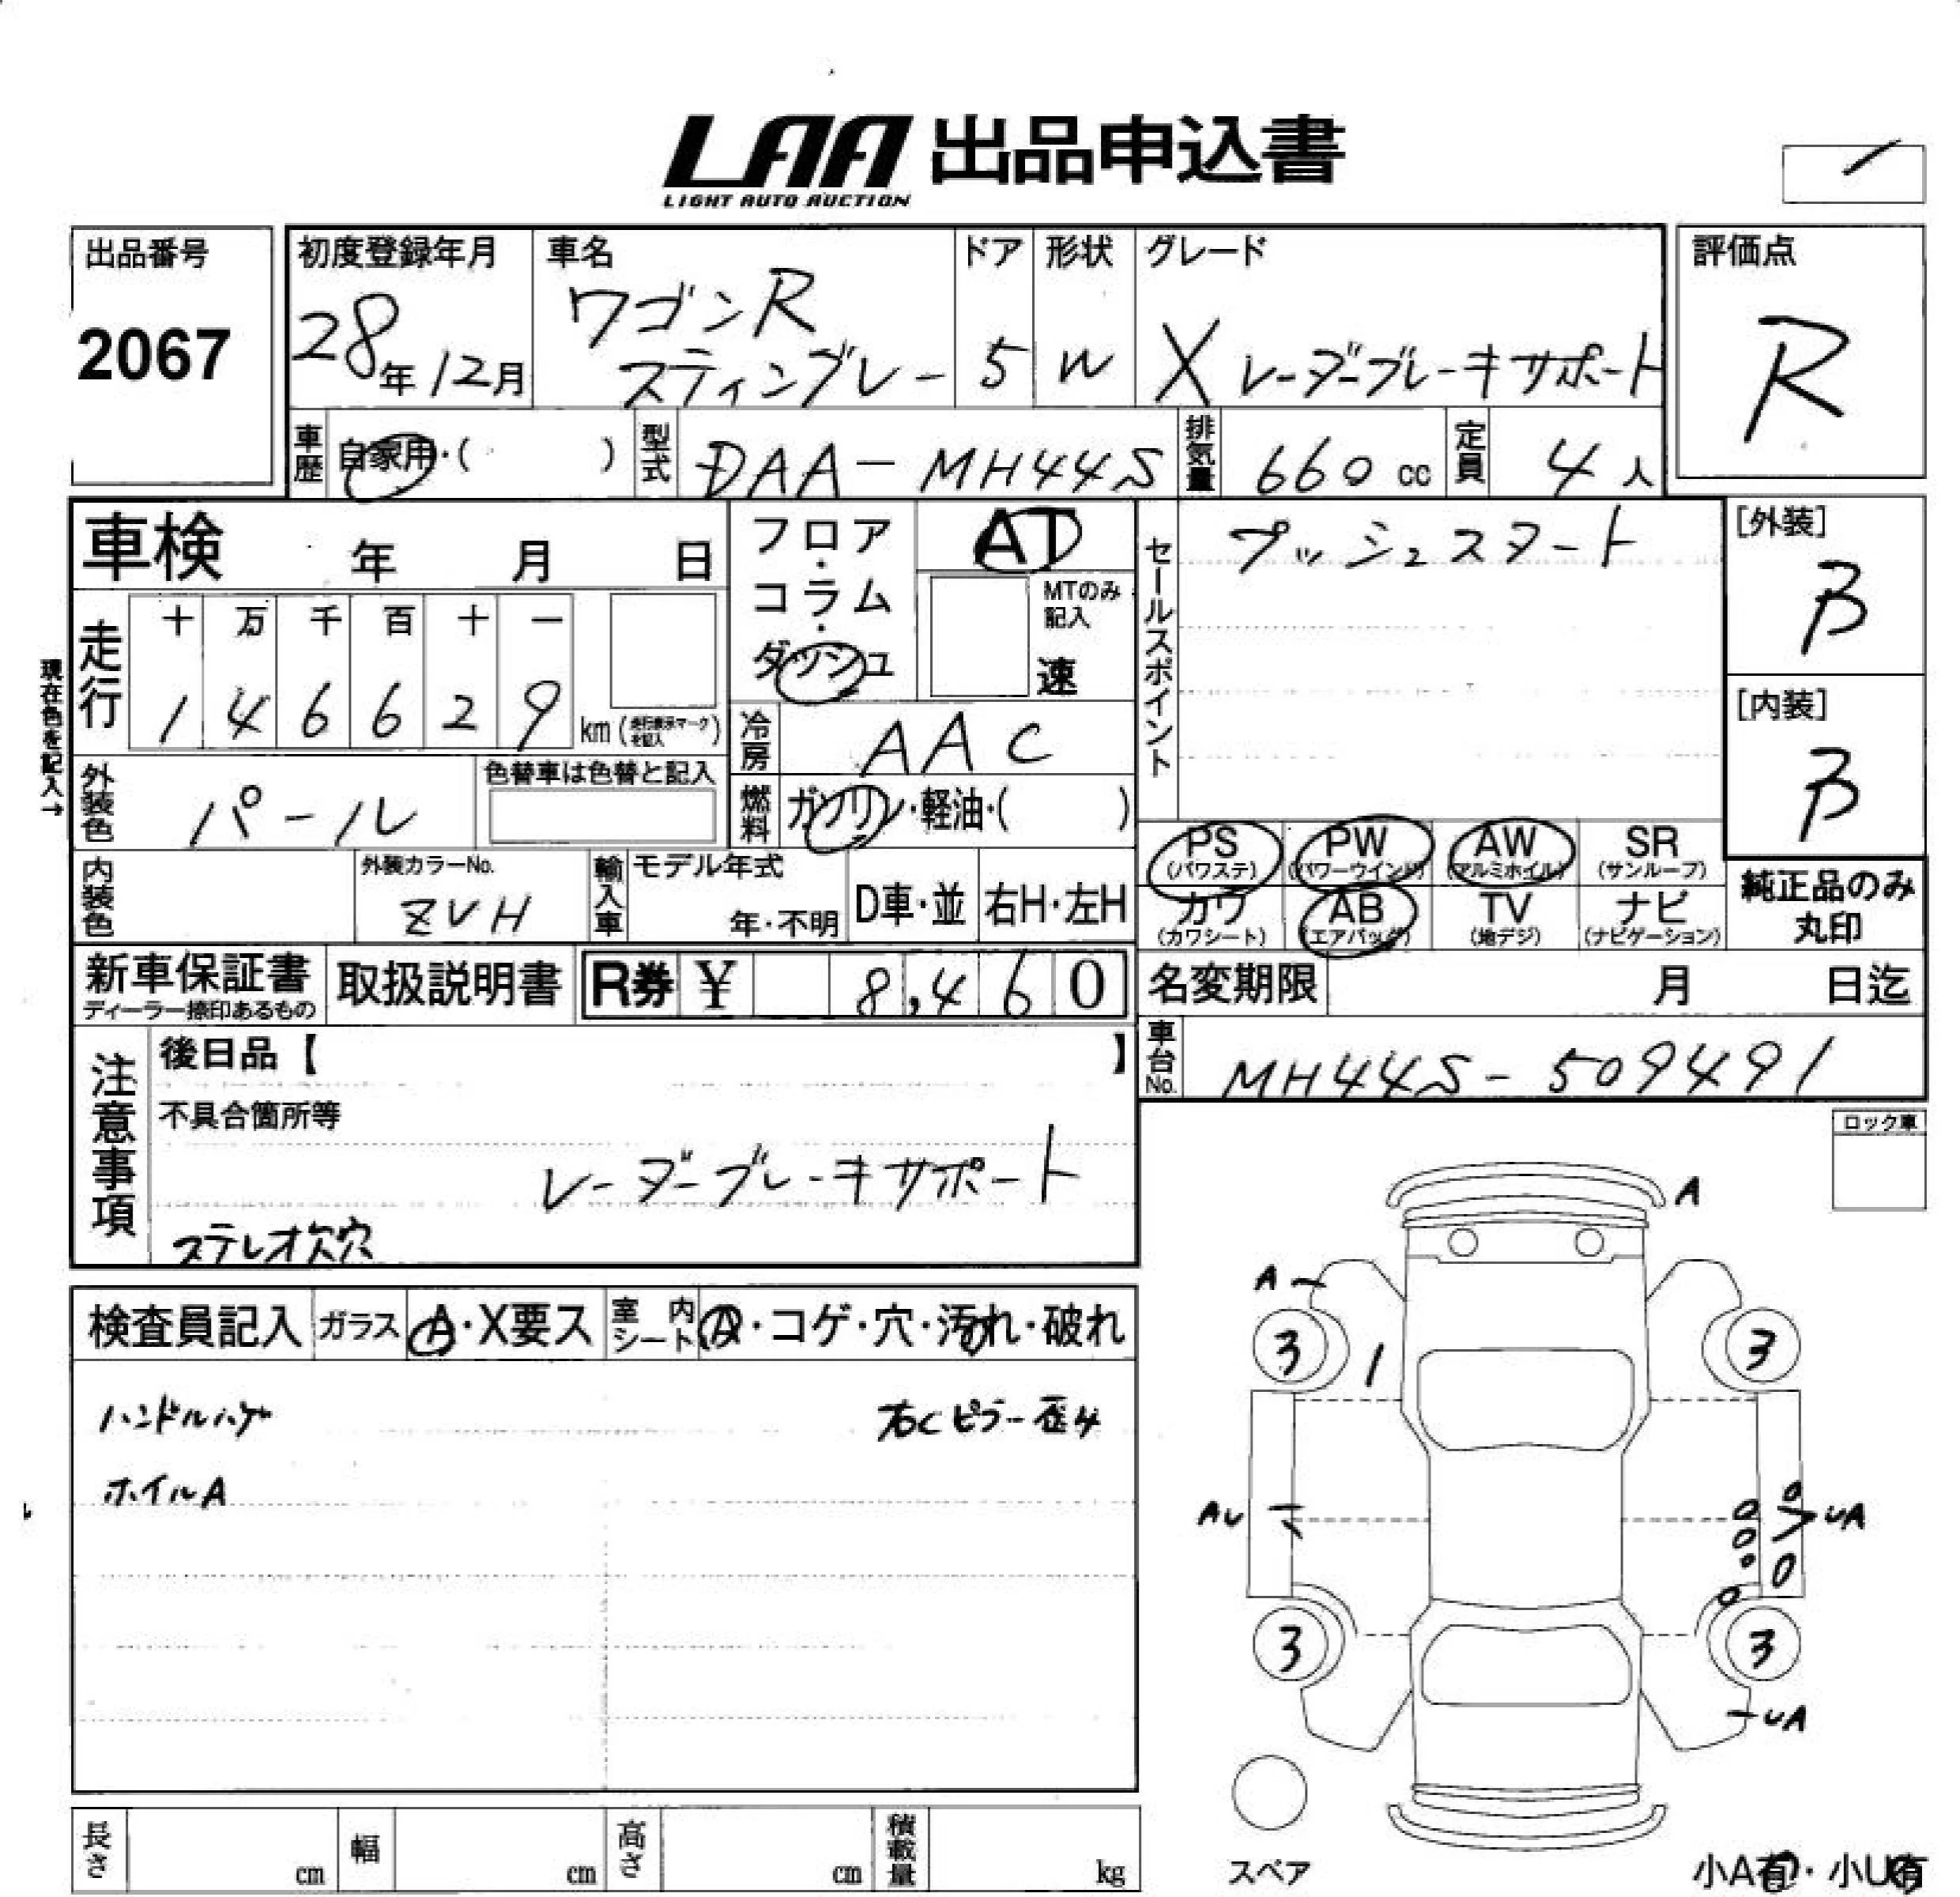 LAA 出品申込書
LIGHT AUTO AUCTION
出品番号
2067
初度登録年月
28年12月
車名
ワゴンR
スティングレー
ドア
5
形状
W
グレード
X レーダーブレーキサポート
評価点
R
車歴
自家用・( )
型式
DAA-MH44S
排気量
660 cc
定員
4人
車検 年 月 日
フロア・コラム・ダッシュ
AT
MTのみ記入
速
セールスポイント
プッシュスタート
[外装]
B
[内装]
B
現在色を記入→
走行
十 万 千 百 十 一
1 4 6 6 2 9
km (走行表示マークを記入)
冷房
AAC
外装色
パール
色替車は色替と記入
燃料
ガソリン・軽油・( )
内装色
外装カラーNo.
ZVH
輸入車
モデル年式
年・不明
D車・並
右H・左H
PS
(パワステ)
PW
(パワーウインド)
AW
(アルミホイル)
SR
(サンルーフ)
カワ
(カワシート)
AB
(エアバッグ)
TV
(地デジ)
ナビ
(ナビゲーション)
純正品のみ
丸印
新車保証書
ディーラー捺印あるもの
取扱説明書
R券 ¥ 8,460
名変期限 月 日迄
車台No.
MH44S-509491
注意事項
後日品【 】
不具合箇所等
レーダーブレーキサポート
ステレオ欠穴
ロック車
検査員記入
ガラス
A・X要ス
室内シート
A・コゲ・穴・汚れ・破れ
ハンドルハゲ
右Cピラー歪み
ホイルA
A
A
3
3
1
AU
UA
3
3
UA
スペア
小A有・小U有
長さ cm
幅 cm
高さ cm
積載量 kg